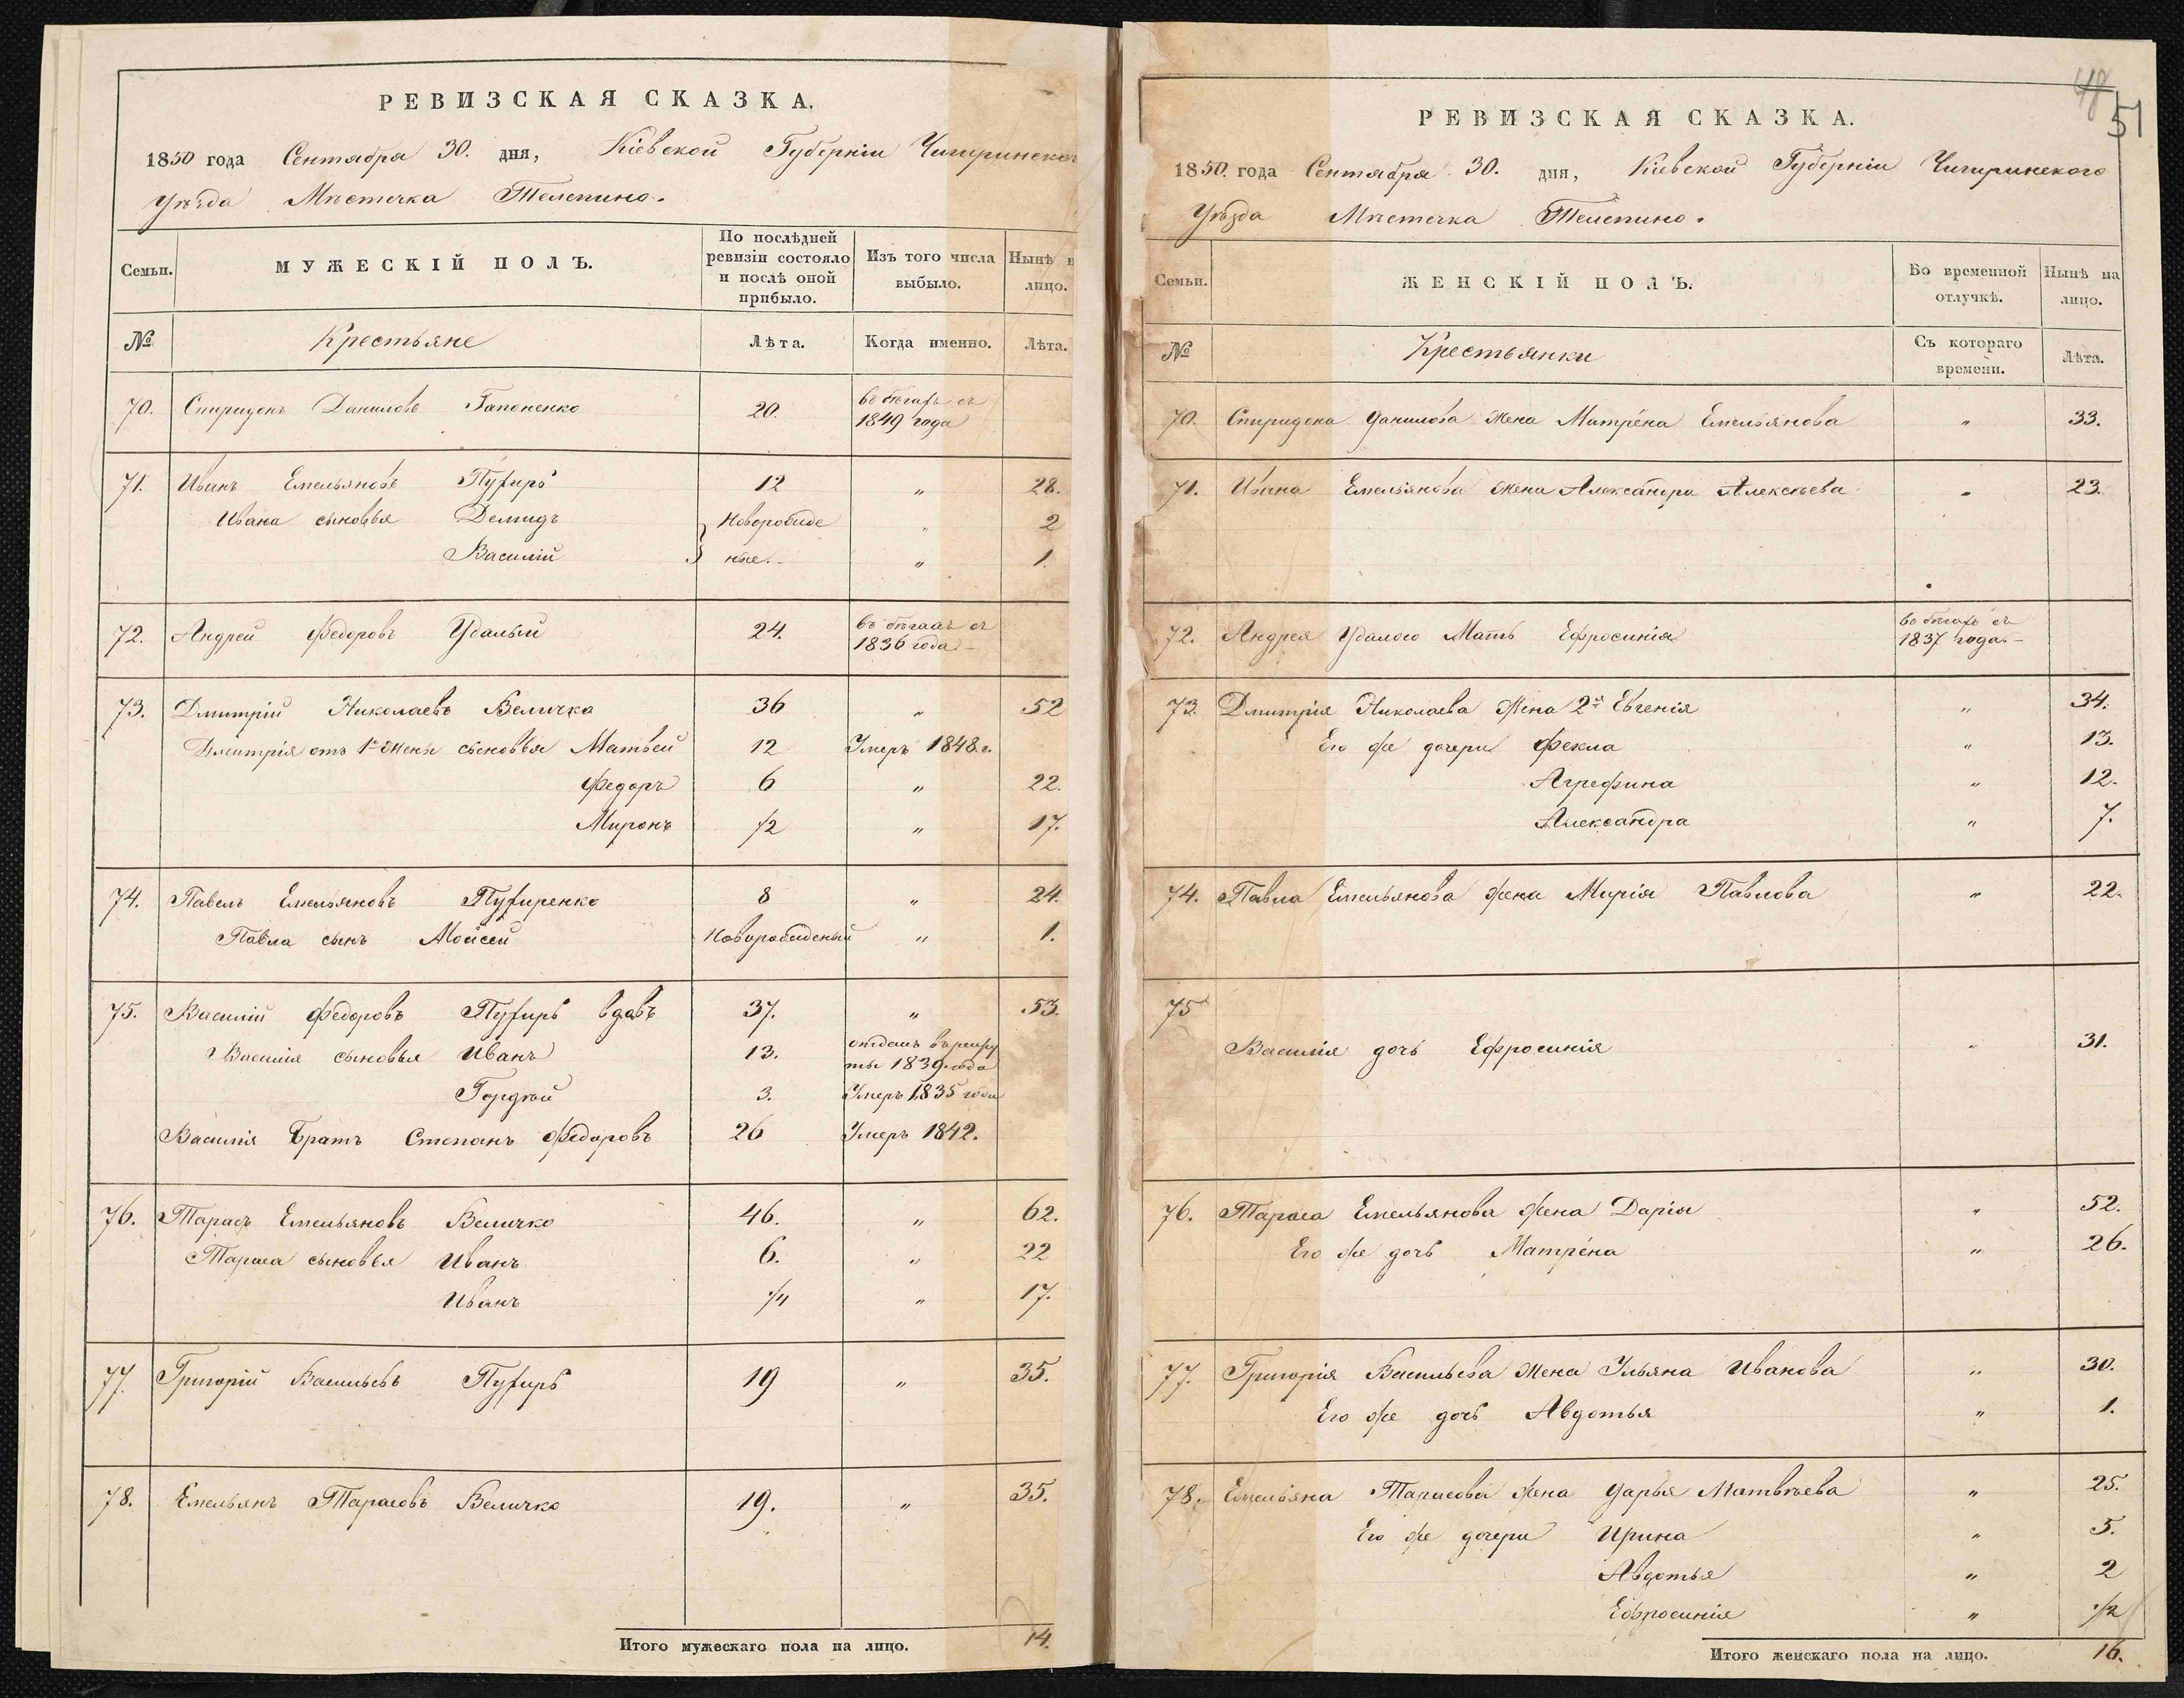 РЕВИЗСКАЯ СКАЗКА.
1850 года Сентября 30. дня, Кіевской Губерніи Чигиринског
Уѣзда Мѣстечка Телепино.
Семьи. МУЖЕСКІЙ ПОЛЪ. По послѣдней ревизіи состояло и послѣ оной прибыло. Изъ того числа выбыло. Нынѣ н лицо.
№ Крестьяне Лѣта. Когда именно. Лѣта.
70. Спиридонъ Даниловъ Гапоненко 20. въ бѣгахъ съ 1849 года
71. Иванъ Емельяновъ Пузырь 12 " 28.
Ивана сыновья Демидъ Новорожде " 2
Василій ные. " 1.
72. Андрей Федоровъ Удалый 24. въ бѣгахъ съ 1836 года
73. Дмитрій Николаевъ Величка 36 " 52
Дмитрія отъ 1й жены сыновья Матвей 12 Умеръ 1848 г.
Федоръ 6 " 22.
Миронъ 1/2 " 17.
74. Павелъ Емельяновъ Пузыренко 8 " 24.
Павла сынъ Мойсей Новорожденый " 1.
75. Василій Федоровъ Пузырь вдовъ 37. " 53.
Василія сыновья Иванъ 13. отданъ в рекру ты 1839 года
Гордѣй 3. Умеръ 1835 года
Василія братъ Степанъ Федоровъ 26 Умеръ 1842.
76. Тарасъ Емельяновъ Величко 46. " 62.
Тараса сыновья Иванъ 6. " 22
Иванъ " 17.
77. Григорій Васильевъ Пузырь 19 " 35.
78. Емельянъ Тарасовъ Величко 19. " 35.
Итого мужескаго пола на лицо. 14.
48
51
РЕВИЗСКАЯ СКАЗКА.
1850 года Сентября 30. дня, Кіевской Губерніи Чигиринского
Уѣзда Мѣстечка Телепино.
Семьи. ЖЕНСКІЙ ПОЛЪ. Во временной отлучкѣ. Нынѣ на лицо.
№ Крестьянки Съ котораго времени. Лѣта.
70. Спиридона Данилова жена Матрёна Емельянова " 33.
71. Ивана Емельянова жена Александра Алексѣева " 23.
72. Андрея Удалого Мать Ефросинія въ бѣгахъ съ 1837 года
73. Дмитрія Николаева Жена 2я Евгенія " 34.
Его же дочери Фекла " 13.
Агрефина " 12.
Александра " 7.
74. Павла Емельянова жена Марія Павлова " 22.
75
Василія дочь Ефросинія " 31.
76. Тараса Емельянова жена Дарія " 52.
Его же дочь Матрёна " 26.
77. Григорія Васильева жена Ульяна Иванова " 30.
Его же дочь Авдотья " 1.
78. Емельяна Тарасова жена Дарья Матвѣева " 25.
Его же дочери Ирина " 5.
Авдотья " 2
Ефросинія " 1/2
Итого женскаго пола на лицо. 16.